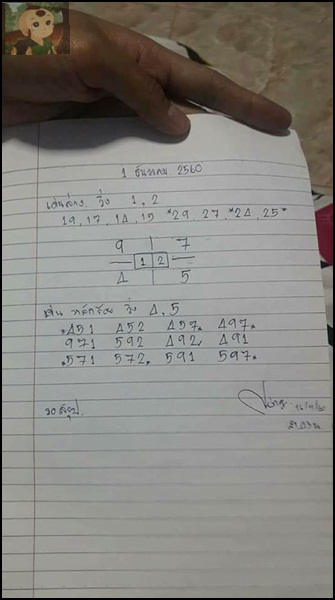 1 ธันวาคม 2560
เด่นล่าง วิ่ง 1,2
19, 17, 14, 15 *29, 27, *24, 25*
9 7
1 2
4 5
เด่น หลักร้อย วิ่ง 4,5
*451 452 457* 497*
971 592 492, 491
*571 572, 591 597*